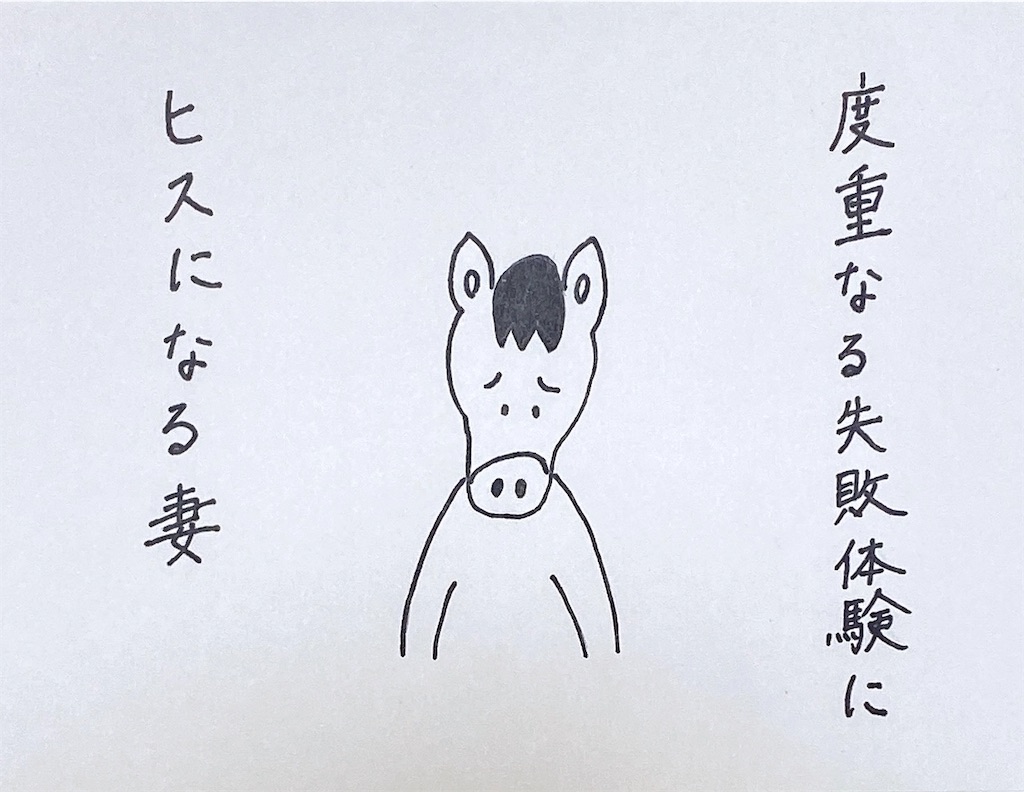 度重なる失敗体験に
ヒスになる妻